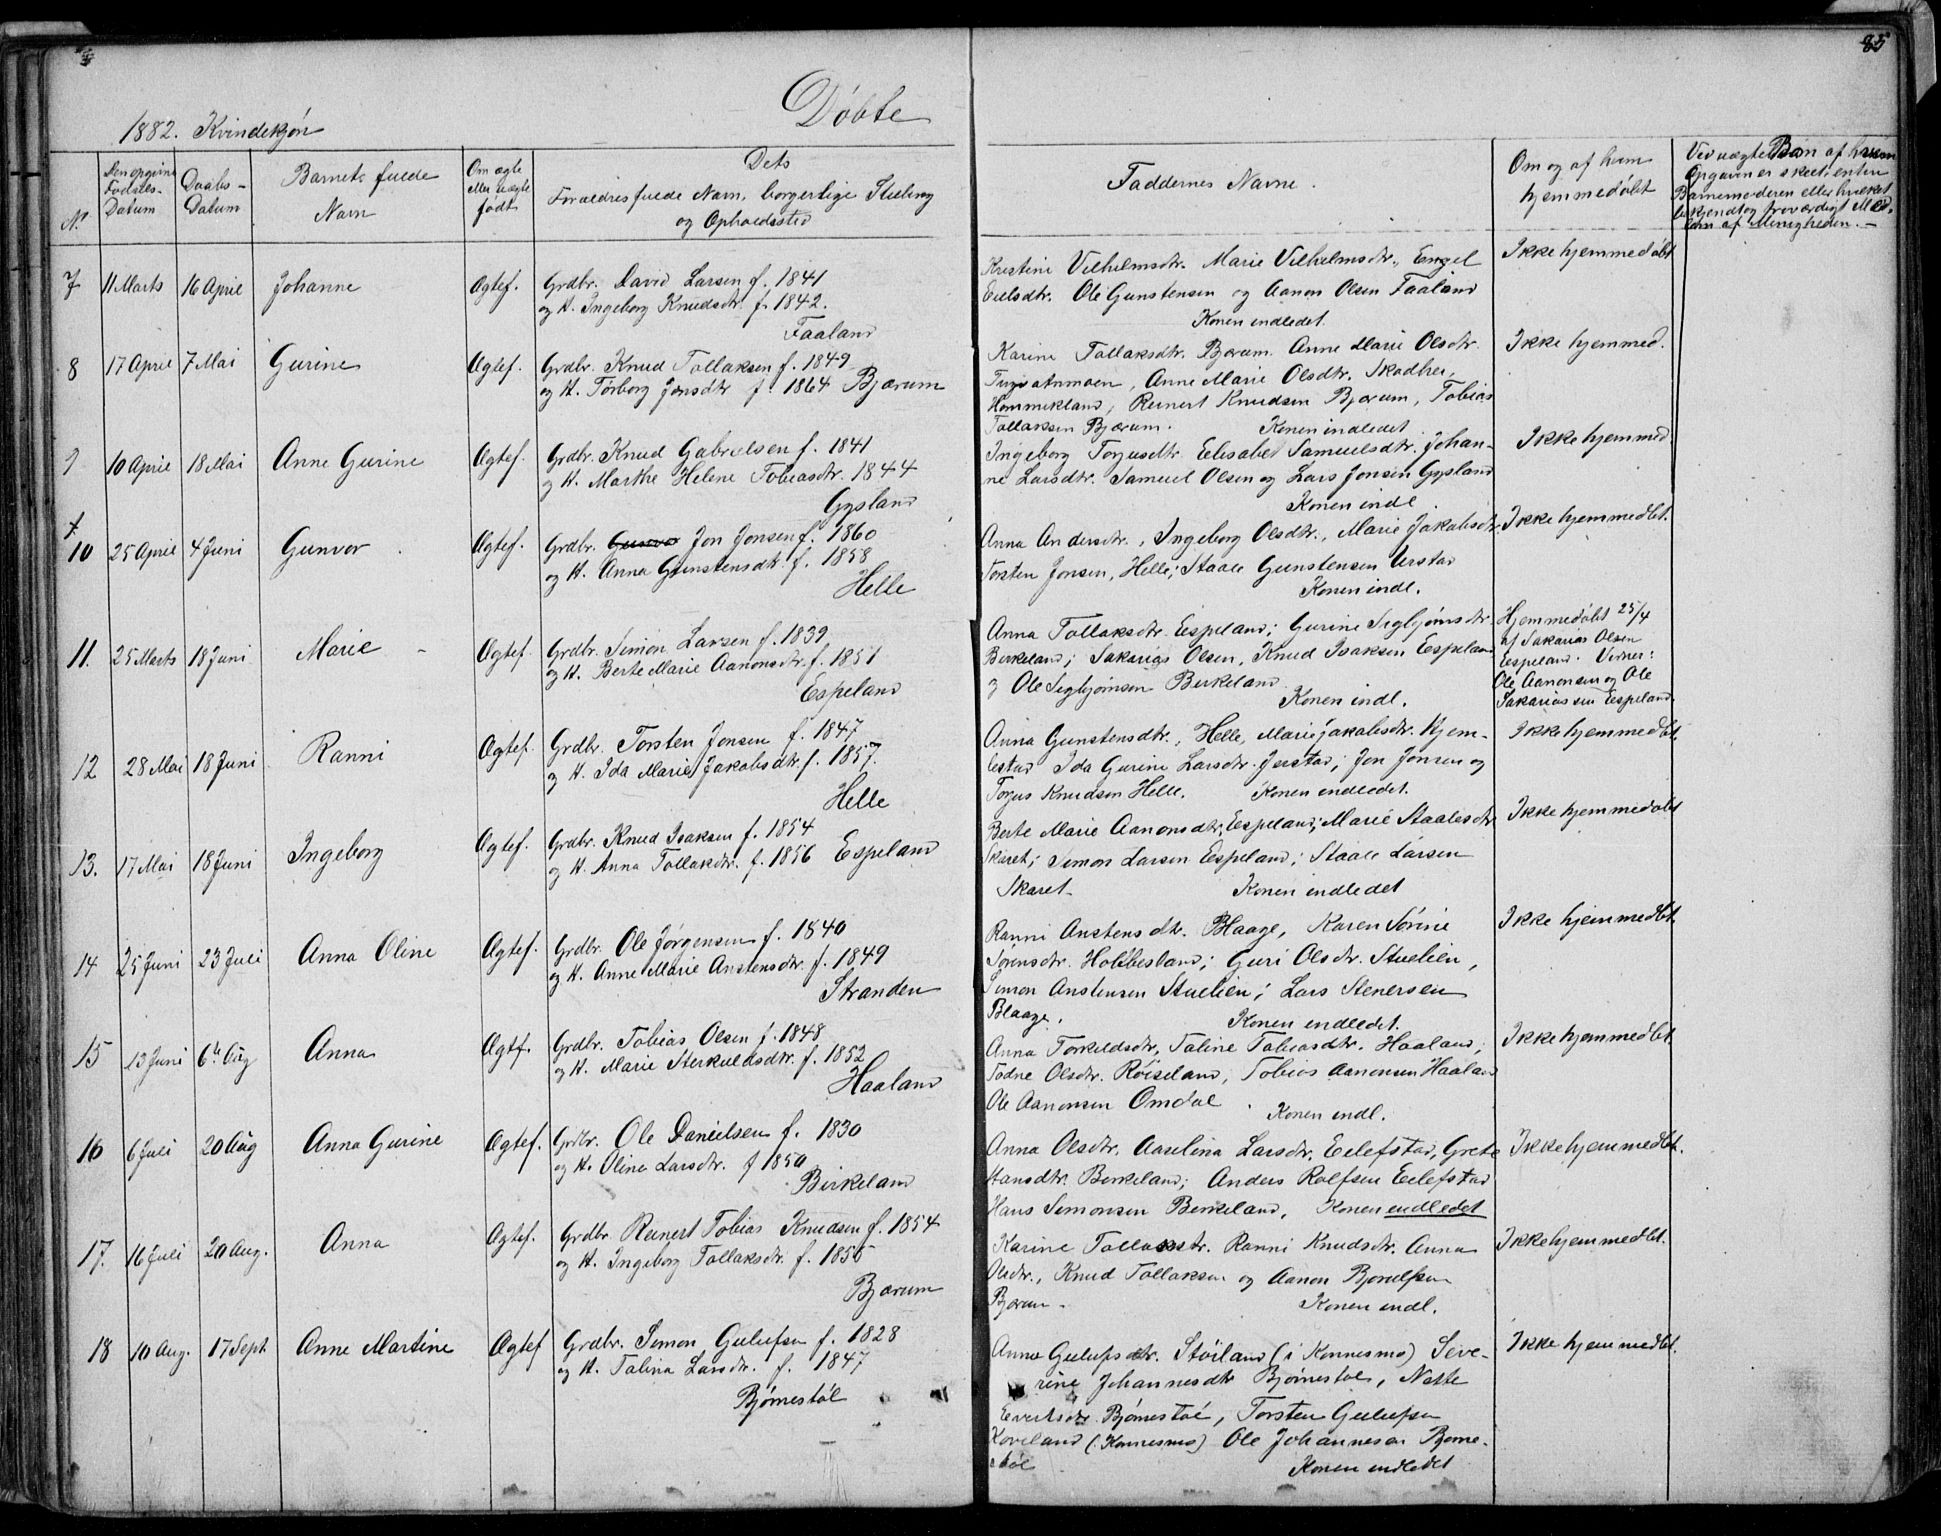 85
Döbte
1882. Kvindekjön
No.
Den opgivne Fødsels-Datum
Daabs-Datum
Barnets fulde Navn
Om ægte eller uægte født
Dets Forældres fulde Navn, borgerlige Stilling og Opholdssted
Faddernes Navne.
Om og af hvem hjemmedøbt
Ved uægte Börn af hvem Opgaven er skeet: enten Barnemoderen eller hvilket bekjendt og troværdigt Medlem af Menigheden.
7 11 Marts 16 April Johanne Ægtef. Grdbr. David Larsen f. 1841
og H. Ingeborg Knudsdtr. f. 1842.
Faaland
Kristine Vilhelmsdtr. Marie Vilhelmsdtr., Engel
Eilsdtr. Ole Gunstensen og Aanon Olsen Faaland
Konen indledet.
Ikke hjemmedöbt
8 17 April 7 Mai Gurine Ægtef. Grdbr. Knud Tollaksen f. 1849
og H. Torborg Jonsdtr f. 1864 Bjærum
Karine Tollaksdtr. Bjærum. Anne Marie Olsdtr.
Anne Marie Olsdtr. Skadber,
Hommekland, Reinert Knudsen Bjærum, Tobias
Tollaksen Bjærum. Konen indledet
Ikke hjemmed.
9 10 April 18 Mai Anne Gurine Ægtef. Grdbr. Knud Gabrielsen f. 1841
og H. Marthe Helene Tobiasdtr. 1844
Gysland
Ingeborg Torgusdtr. Elisabet Samuelsdtr. Johan-
ne Larsdtr. Samuel Olsen og Lars Jonsen Gysland
Konen indl.
Ikke hjemmed.
10 25 April 4 Juni Gunvor Ægtef. Grdbr. Gunvor Jon Jonsen f. 1860
og H. Anna Gunstensdtr. f. 1858
Helle
Anna Andersdtr., Ingeborg Olsdtr., Marie Jakobsdtr.
Torsten Jonsen, Helle; Staale Gunstensen Urstad
Konen indl.
Ikke hjemmedöbt.
11. 25 Marts 18 Juni Marie Ægtef. Grdbr. Simon Larsen f. 1839
og H. Berte Marie Aanonsdtr. f. 1851
Espeland
Anna Tollaksdtr. Espeland; Gurine Sigbjörnsdtr
Birkeland; Sakarias Olsen, Knud Isaksen Espeland
og Ole Sigbjörnsen Birkeland.
Konen indl.
Hjemmedöbt 25/4
af Sakarias Olsen
Espeland. Vidner:
Ole Aanonsen og Ole
Sakariassen Espeland.
12 28 Mai 18 Juni Ranni Ægtef. Grdbr. Torsten Jonsen f. 1847
og H. Ida Marie Jakobsdtr. f. 1857.
Helle
Anna Gunstensdtr., Helle, Marie Jakobsdtr. Hjem-
lestad Ida Gurine Larsdtr. Jerstad; Jon Jonsen og
Torgus Knudsen Helle. Konen indledet.
Ikke hjemmedöbt.
13. 17 Mai 18 Juni Ingeborg Ægtef. Grdbr. Knud Isaksen f. 1854
og H. Anna Tollaksdtr. f. 1856 Espeland
Berte Marie Aanonsdtr. Espeland; Marie Staalesdtr
Skaret; Simon Larsen Espeland; Staale Larsen
Skaret. Konen indledet
Ikke hjemmedöbt
14 25 Juni 23 Juli Anna Oline Ægtef. Grdbr. Ole Jörgensen f. 1840
og H. Anne Marie Anstensdtr. f. 1849
Stranden
Ranni Anstensdtr. Blaage, Karen Sörine
Sörensdtr. Hobbesland; Guri Olsdtr. Stuelien,
Simon Anstensen Stuelien; Lars Stenersen
Blaage. Konen indledet.
Ikke hjemmedöbt.
15 13 Juni 6te Aug Anna Ægtf. Grdbr. Tobias Olsen f. 1848
og H. Marie Sterkuldsdtr. f. 1852
Haaland
Anna Torkildsdtr. Taline Tobiasdtr. Haaland;
Todne Olsdtr. Röiseland, Tobias Aanonsen Haaland
Ole Aanonsen Omdal. Konen indl.
Ikke hjemmedöbt.
16 6 Juli 20 Aug Anna Gurine Ægtef. Grdbr. Ole Danielsen f. 1830
og H. Oline Larsdtr. f 1850
Birkeland
Anna Olsdtr. Aaselina Larsdtr. Eilefstad, Grete
Hansdtr. Birkeland; Anders Rolfsen Eilefstad
Hans Simonsen Birkeland, Konen indledet
Ikke hjemmedöbt.
17. 16 Juli 20 Aug. Anna Ægtef. Grdbr. Reinert Tobias Knudsen f. 1854
og H. Ingeborg Tollaksdtr. f. 1855
Bjærum
Karine Tollaksdtr. Ranni Knudsdtr. Anna
Olsdtr., Knud Tollaksen og Aanon Bjorulfsen
Bjærum. Konen indl.
Ikke hjemmedöbt.
18 10 Aug. 17 Sept Anne Martine Ægtef Grdbr. Simon Gulufsen f. 1828
og H. Talina Larsdtr. f. 1847
Bjórnestöl
Anne Gulufsdtr. Stöiland (i Konnesmo) Seve-
rine Johannesdtr Bjórnestöl, Nette
Evertsdtr. Bjórnestöl, Torsten Gulufsen
Koveland (Konnesmo) Ole Johannesen Bjórne-
stöl Konen indledet
Ikke hjemmedöbt.